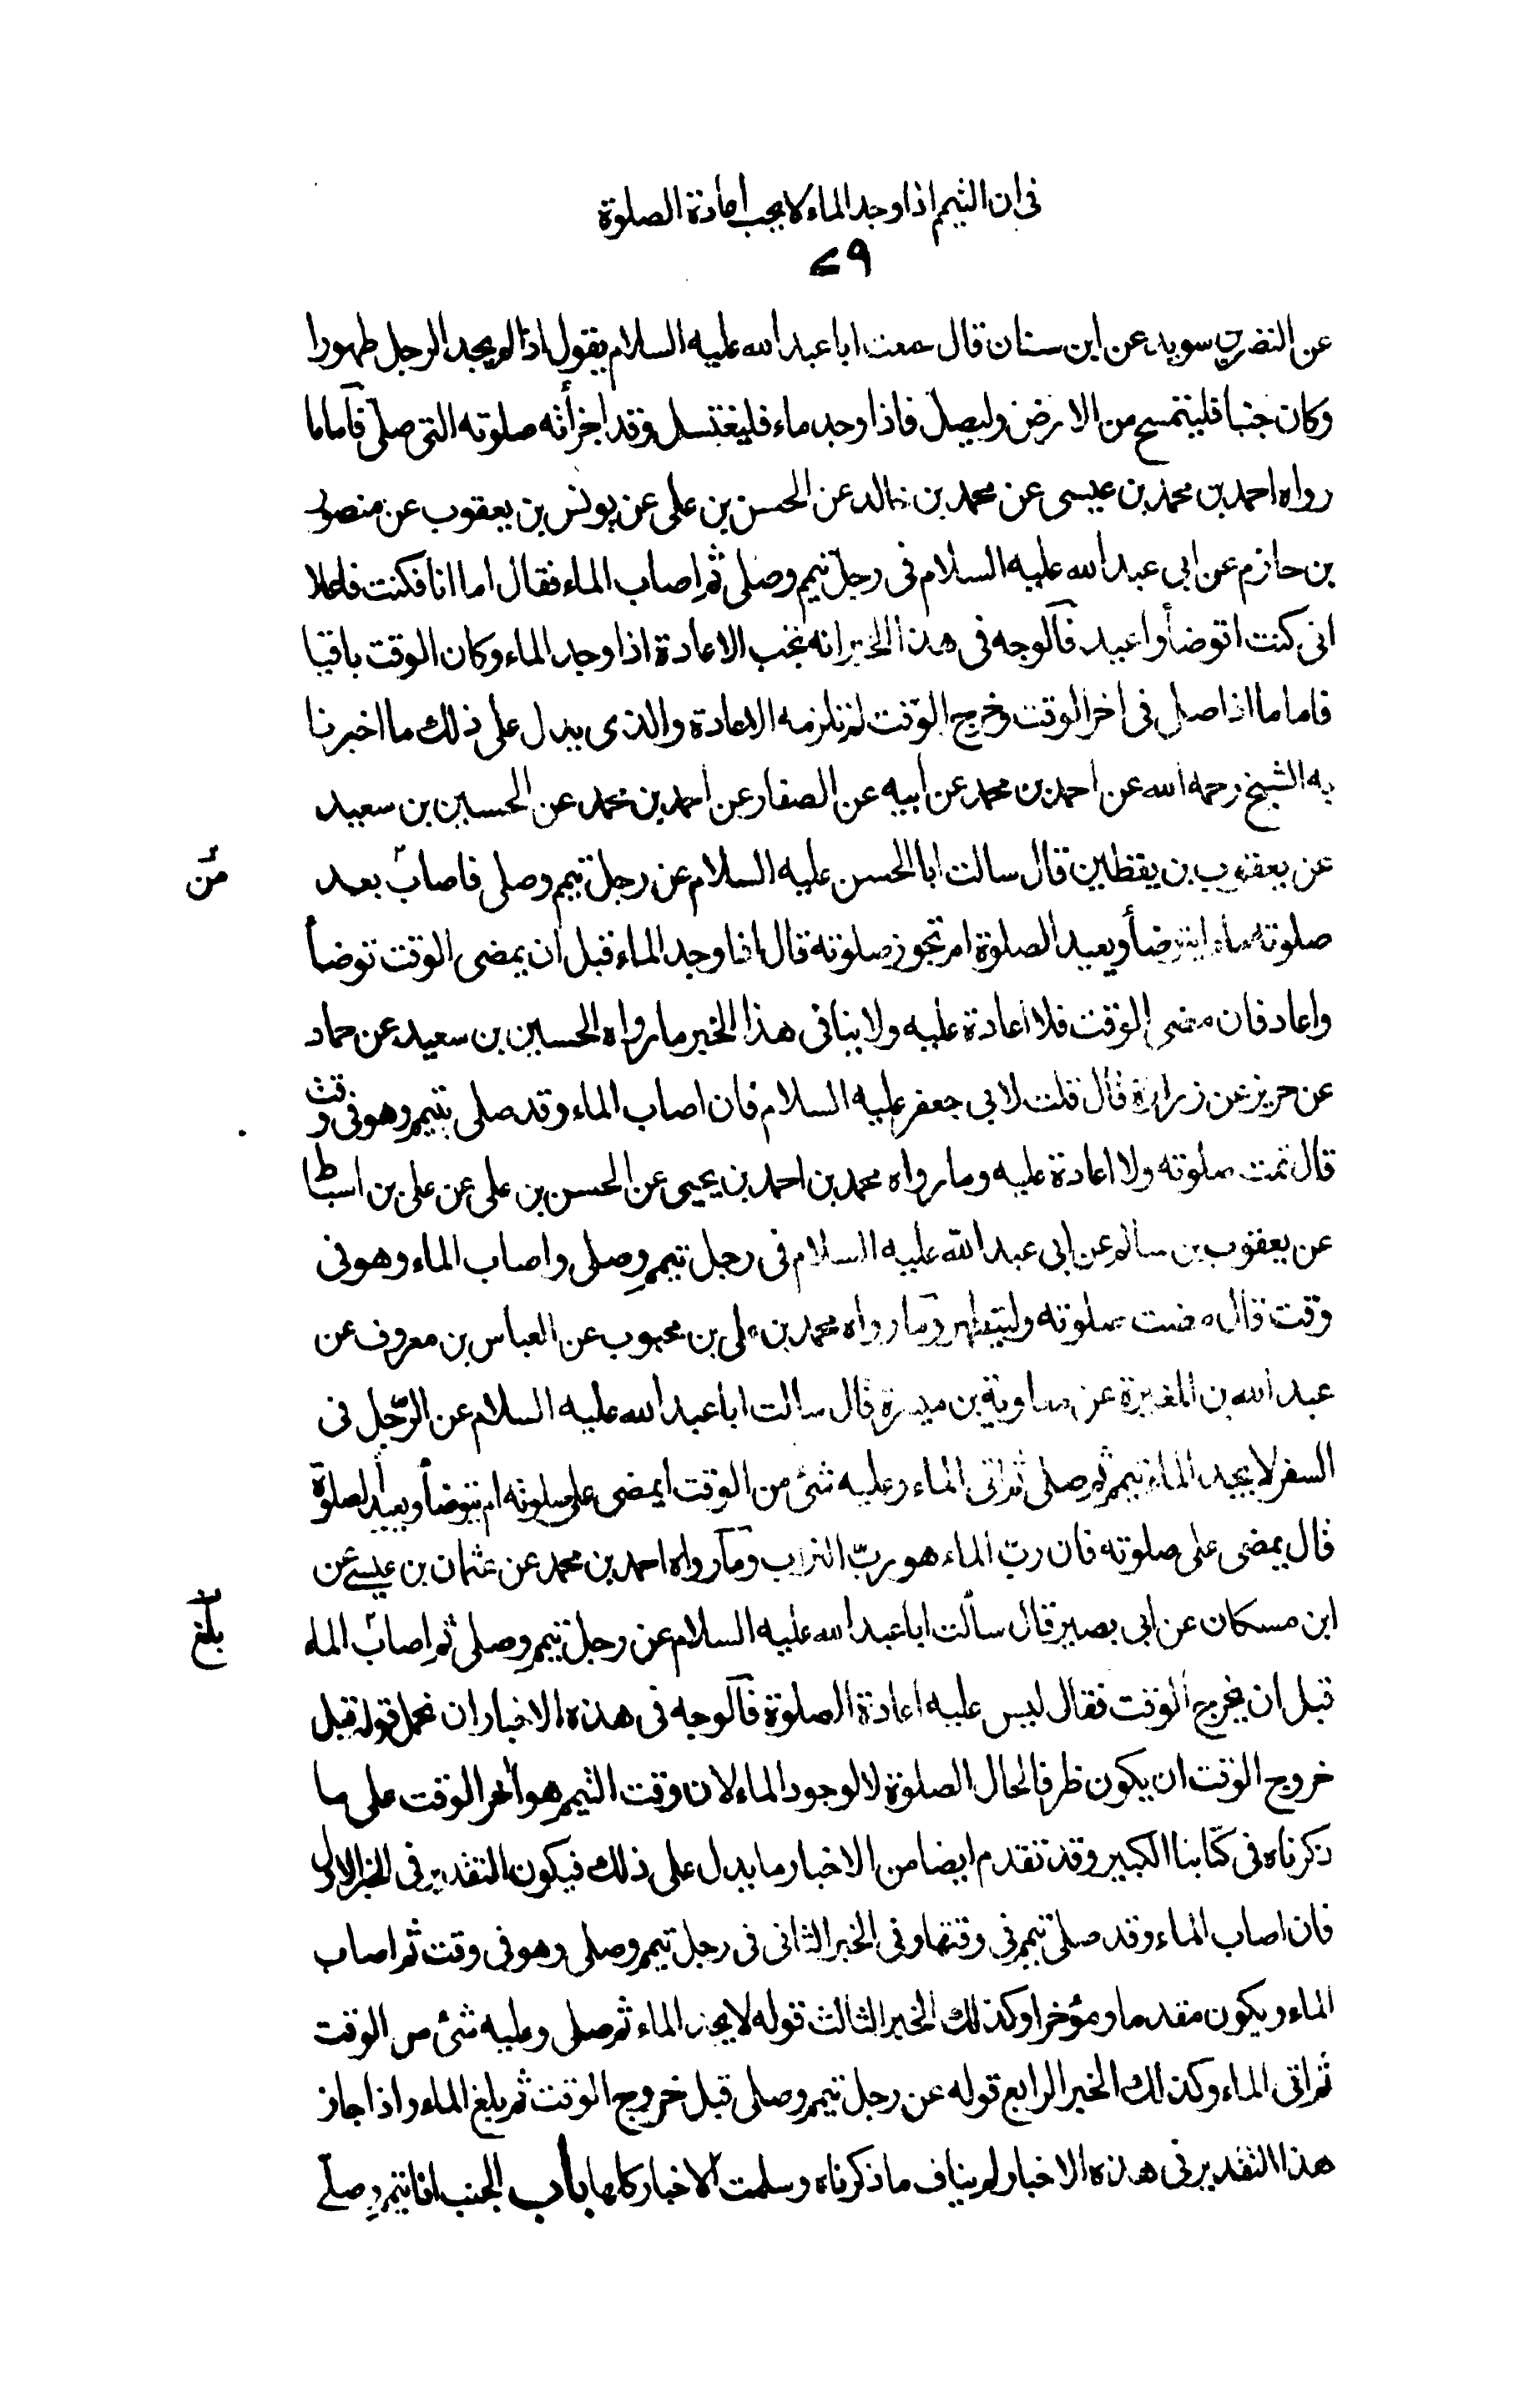 فى ان التيمم اذا وجد الماء لا يجب اعادة الصلوة
٧٩
عن النضر بن سويد عن ابن سنان قال سمعت ابا عبد الله عليه السلام يقول اذا لم يجد الرجل طهورا
وكان جنبا فليتمسح من الارض وليصل فاذا وجد ماء فليغتسل وقد اجزأته صلوته التى صلى فاما ما
رواه احمد بن محمد بن عيسى عن محمد بن خالد عن الحسن بن على عن يونس بن يعقوب عن منصور
بن حازم عن ابى عبد الله عليه السلام فى رجل تيمم وصلى ثم اصاب الماء فقال اما انا فكنت فاعلا
انى كنت اتوضأ واعيد فالوجه فى هذا الخبر انه تجب الاعادة اذا وجد الماء وكان الوقت باقيا
فاما ما اذا صلى فى اخر الوقت وخرج الوقت لم تلزمه الاعادة والذى يدل على ذلك ما اخبرنا
به الشيخ رحمه الله عن احمد بن محمد عن ابيه عن الصفار عن احمد بن محمد عن الحسين بن سعيد
عن يعقوب بن يقطين قال سالت ابا الحسن عليه السلام عن رجل تيمم وصلى فاصاب بعد
من
صلوته ماء ايتوضأ ويعيد الصلوة ام تجوز صلوته قال اذا وجد الماء قبل ان يمضى الوقت توضأ
واعاد فان مضى الوقت فلا اعادة عليه ولا ينافى هذا الخبر ما رواه الحسين بن سعيد عن حماد
عن حريز عن زرارة قال قلت لابى جعفر عليه السلام فان اصاب الماء وقد صلى بتيمم وهو فى وقت
قال تمت صلوته ولا اعادة عليه وما رواه محمد بن احمد بن يحيى عن الحسن بن على عن على بن اسباط
عن يعقوب بن سالم عن ابى عبد الله عليه السلام فى رجل تيمم وصلى واصاب الماء وهو فى
وقت قال مضت صلوته وليتطهر وما رواه محمد بن على بن محبوب عن العباس بن معروف عن
عبد الله بن المغيرة عن معاوية بن ميسرة قال سالت ابا عبد الله عليه السلام عن الرجل فى
السفر لا يجد الماء تيمم ثم صلى ثم اتى الماء وعليه شئ من الوقت ايمضى على صلوته ام يتوضأ ويعيد الصلوة
قال يمضى على صلوته فان رب الماء هو رب التراب وما رواه احمد بن محمد عن عثمان بن عيسى عن
ابن مسكان عن ابى بصير قال سألت ابا عبد الله عليه السلام عن رجل تيمم وصلى ثم اصاب الماء
بلغ
قبل ان يخرج الوقت فقال ليس عليه اعادة الصلوة فالوجه فى هذه الاخبار ان نحمل قوله قبل
خروج الوقت ان يكون ظرفا لحال الصلوة لا لوجود الماء لان وقت التيمم هو اخر الوقت على ما
ذكرناه فى كتابنا الكبير وقد تقدم ايضا من الاخبار ما يدل على ذلك فيكون التقدير فى الخبر الاول
فان اصاب الماء وقد صلى بتيمم فى وقتها وفى الخبر الثانى فى رجل تيمم وصلى وهو فى وقت ثم اصاب
الماء ويكون مقدما ومؤخرا وكذلك الخبر الثالث قوله لا يجد الماء ثم صلى وعليه شئ من الوقت
ثم اتى الماء وكذلك الخبر الرابع قوله عن رجل تيمم وصلى قبل خروج الوقت ثم بلغ الماء واذا جاز
هذا التقدير فى هذه الاخبار لم يناف ما ذكرناه وسلمت الاخبار كلها باب الجنب اذا تيمم وصلى